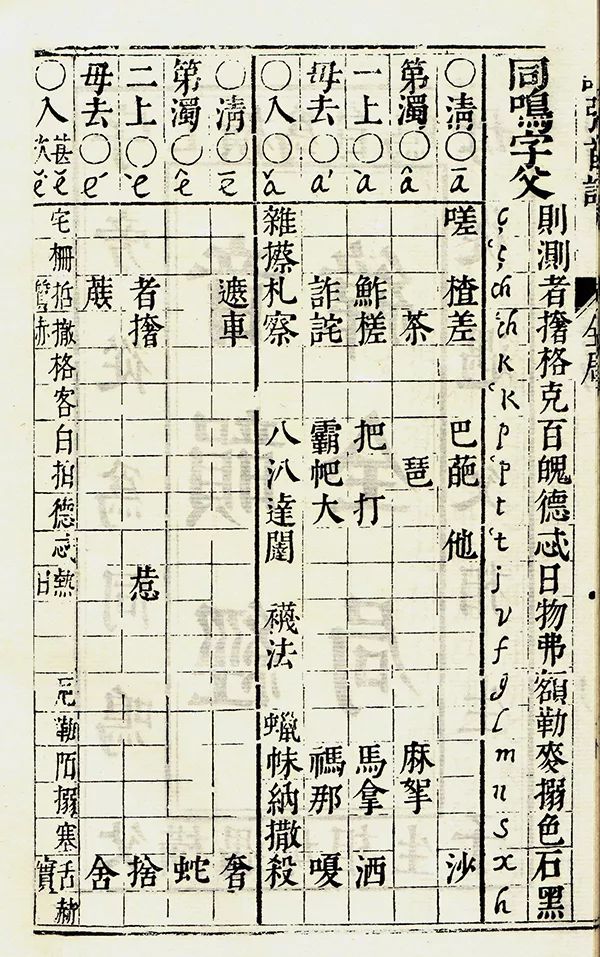 同鳴字父 則測者撦格克百魄德忒日物弗額勒麥搦色石黑
ç ʽç ch ʽch k ʽk p ʽp t ʽt j v f g l m n s x h
○清○ā 嗟楂差巴葩他沙
第濁○â 茶琶麻拏
一上○à 鮓槎把打馬拿洒
毋去○á 詐詫霸帊大禡那嗄
○入○ă 雜攃札察八汃達闥襪法蠟帓納撒殺
○清○ē 遮車奢
第濁○ê 蛇
二上○è 者撦惹捨
毋去○é 蔗舍
○入甚ĕ次ė 宅柵摺撤格客白拍德忒熱日厄勒陌搦塞舌實赫